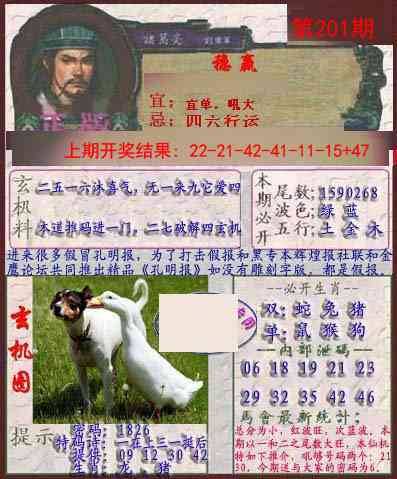 第201期
諸葛亮
穩赢
宜:宜单。吼大
忌:四六行运
正版
上期开奖结果: 22-21-42-41-11-15+47
玄机料
二五一六沐喜气,无一来九它爱四
本道推码进一门,二七破解四玄机
本期必开
尾数:1590268
波色:绿 蓝
五行:土 金 木
进来很多假冒孔明报,为了打击假报和黑专本辉煌报社联和金
鹰论坛共同推出精品《孔明报》如没有雕刻字版,都是假报。
玄机图
--必开生肖--
双:蛇 兔 猪
单:鼠 猴 狗
--内部泄码--
06 18 19 21 23
29 32 35 42 46
馬會最新統計:
总分为小,红波旺,次蓝波,本
期以一和二之尾数大旺,本仙机
特如下推介,吼够号码两个:21
30,今期送与大家的密码为6.
提示
密码:1826
特码诗:一在上三一斑后
提供:09 12 30 42
生肖:龙 猪